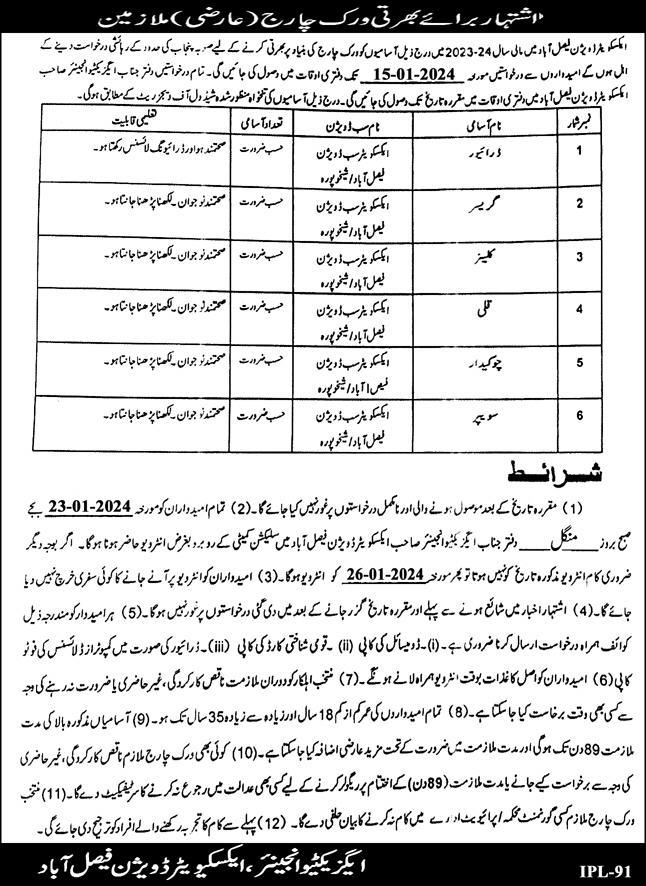 اشتہار برائے بھرتی ورک چارج (عارضی) ملازمین
ایکسکویٹر ڈویژن فیصل آباد میں مالی سال 24-2023 میں درج ذیل آسامیوں کو ورک چارج کی بنیاد پر بھرتی کرنے کے لیے صوبہ پنجاب کی حدود کے رہائشی درخواست دینے کے
اہل ہوں گے امیدواروں سے درخواستیں مورخہ 15-01-2024 تک دفتری اوقات میں وصول کی جائیں گی۔ تمام درخواستیں دفتر جناب ایگزیکٹیو انجینئر صاحب
ایکسکویٹر ڈویژن فیصل آباد میں دفتری اوقات میں مقررہ تاریخ تک وصول کی جائیں گی۔ درج ذیل آسامیوں کی تنخواہ منظور شدہ شیڈول آف ویجز ریٹ کے مطابق ہوگی۔
نمبر شمار نام آسامی نام سب ڈویژن تعداد آسامی تعلیمی قابلیت
1 ڈرائیور ایکسکویٹر سب ڈویژن فیصل آباد/شیخوپورہ حسب ضرورت صحتمند ہو اور ڈرائیونگ لائسنس رکھتا ہو۔
2 گریسر ایکسکویٹر سب ڈویژن فیصل آباد/شیخوپورہ حسب ضرورت صحتمند نوجوان۔ لکھنا پڑھنا جانتا ہو۔
3 کلینر ایکسکویٹر سب ڈویژن فیصل آباد/شیخوپورہ حسب ضرورت صحتمند نوجوان۔ لکھنا پڑھنا جانتا ہو۔
4 قلی ایکسکویٹر سب ڈویژن فیصل آباد/شیخوپورہ حسب ضرورت صحتمند نوجوان۔ لکھنا پڑھنا جانتا ہو۔
5 چوکیدار ایکسکویٹر سب ڈویژن فیصل آباد/شیخوپورہ حسب ضرورت صحتمند نوجوان۔ لکھنا پڑھنا جانتا ہو۔
6 سویپر ایکسکویٹر سب ڈویژن فیصل آباد/شیخوپورہ حسب ضرورت صحتمند نوجوان۔ لکھنا پڑھنا جانتا ہو۔
شرائط
(1) مقررہ تاریخ کے بعد موصول ہونے والی اور نامکمل درخواستوں پر غور نہیں کیا جائے گا۔ (2) تمام امیدواران کو مورخہ 23-01-2024 بجے
صبح بروز منگل دفتر جناب ایگزیکٹیو انجینئر صاحب ایکسکویٹر ڈویژن فیصل آباد میں سلیکشن کمیٹی کے روبرو بغرض انٹرویو حاضر ہونا ہوگا۔ اگر بوجہ دیگر
ضروری کام انٹرویو مذکورہ تاریخ کو نہیں ہوتا تو پھر مورخہ 26-01-2024 کو انٹرویو ہوگا۔ (3) امیدواران کو انٹرویو پر آنے جانے کا کوئی سفری خرچ نہیں دیا
جائے گا۔ (4) اشتہار اخبار میں شائع ہونے سے پہلے اور مقررہ تاریخ گزر جانے کے بعد میں دی گئی درخواستوں پر غور نہیں ہوگا۔ (5) ہر امیدوار کو مندرجہ ذیل
کوائف ہمراہ درخواست ارسال کرنا ضروری ہے۔ (i)۔ ڈومیسائل کی کاپی (ii)۔ قومی شناختی کارڈ کی کاپی (iii)۔ ڈرائیور کی صورت میں کمپیوٹرائزڈ لائسنس کی فوٹو
کاپی (6) امیدواران کو اصل کاغذات بوقت انٹرویو ہمراہ لانے ہونگے۔ (7) منتخب اہلکار کو دوران ملازمت ناقص کارکردگی، غیر حاضری یا ضرورت نہ رہنے کی وجہ
سے کسی بھی وقت برخاست کیا جا سکتا ہے۔ (8) تمام امیدواروں کی عمر کم از کم 18 سال اور زیادہ سے زیادہ 35 سال تک ہو۔ (9) آسامیاں مذکورہ بالا کی مدت
ملازمت 89 دن تک ہوگی اور مدت ملازمت میں ضرورت کے تحت مزید عارضی اضافہ کیا جا سکتا ہے۔ (10) کوئی بھی ورک چارج ملازم ناقص کارکردگی، غیر حاضری
کی وجہ سے برخواست کیے جانے یا مدت ملازمت (89 دن) کے اختتام پر ریگولر کرنے کے لیے کسی بھی عدالت میں رجوع نہ کرنے کا سرٹیفکیٹ دے گا۔ (11) منتخب
ورک چارج ملازم کسی گورنمنٹ محکمہ/پرائیویٹ ادارے میں کام نہ کرنے کا بیان حلفی دے گا۔ (12) پہلے سے کام کا تجربہ رکھنے والے افراد کو ترجیح دی جائے گی۔
ایگزیکٹیو انجینئر، ایکسکیویٹر ڈویژن فیصل آباد
IPL-91